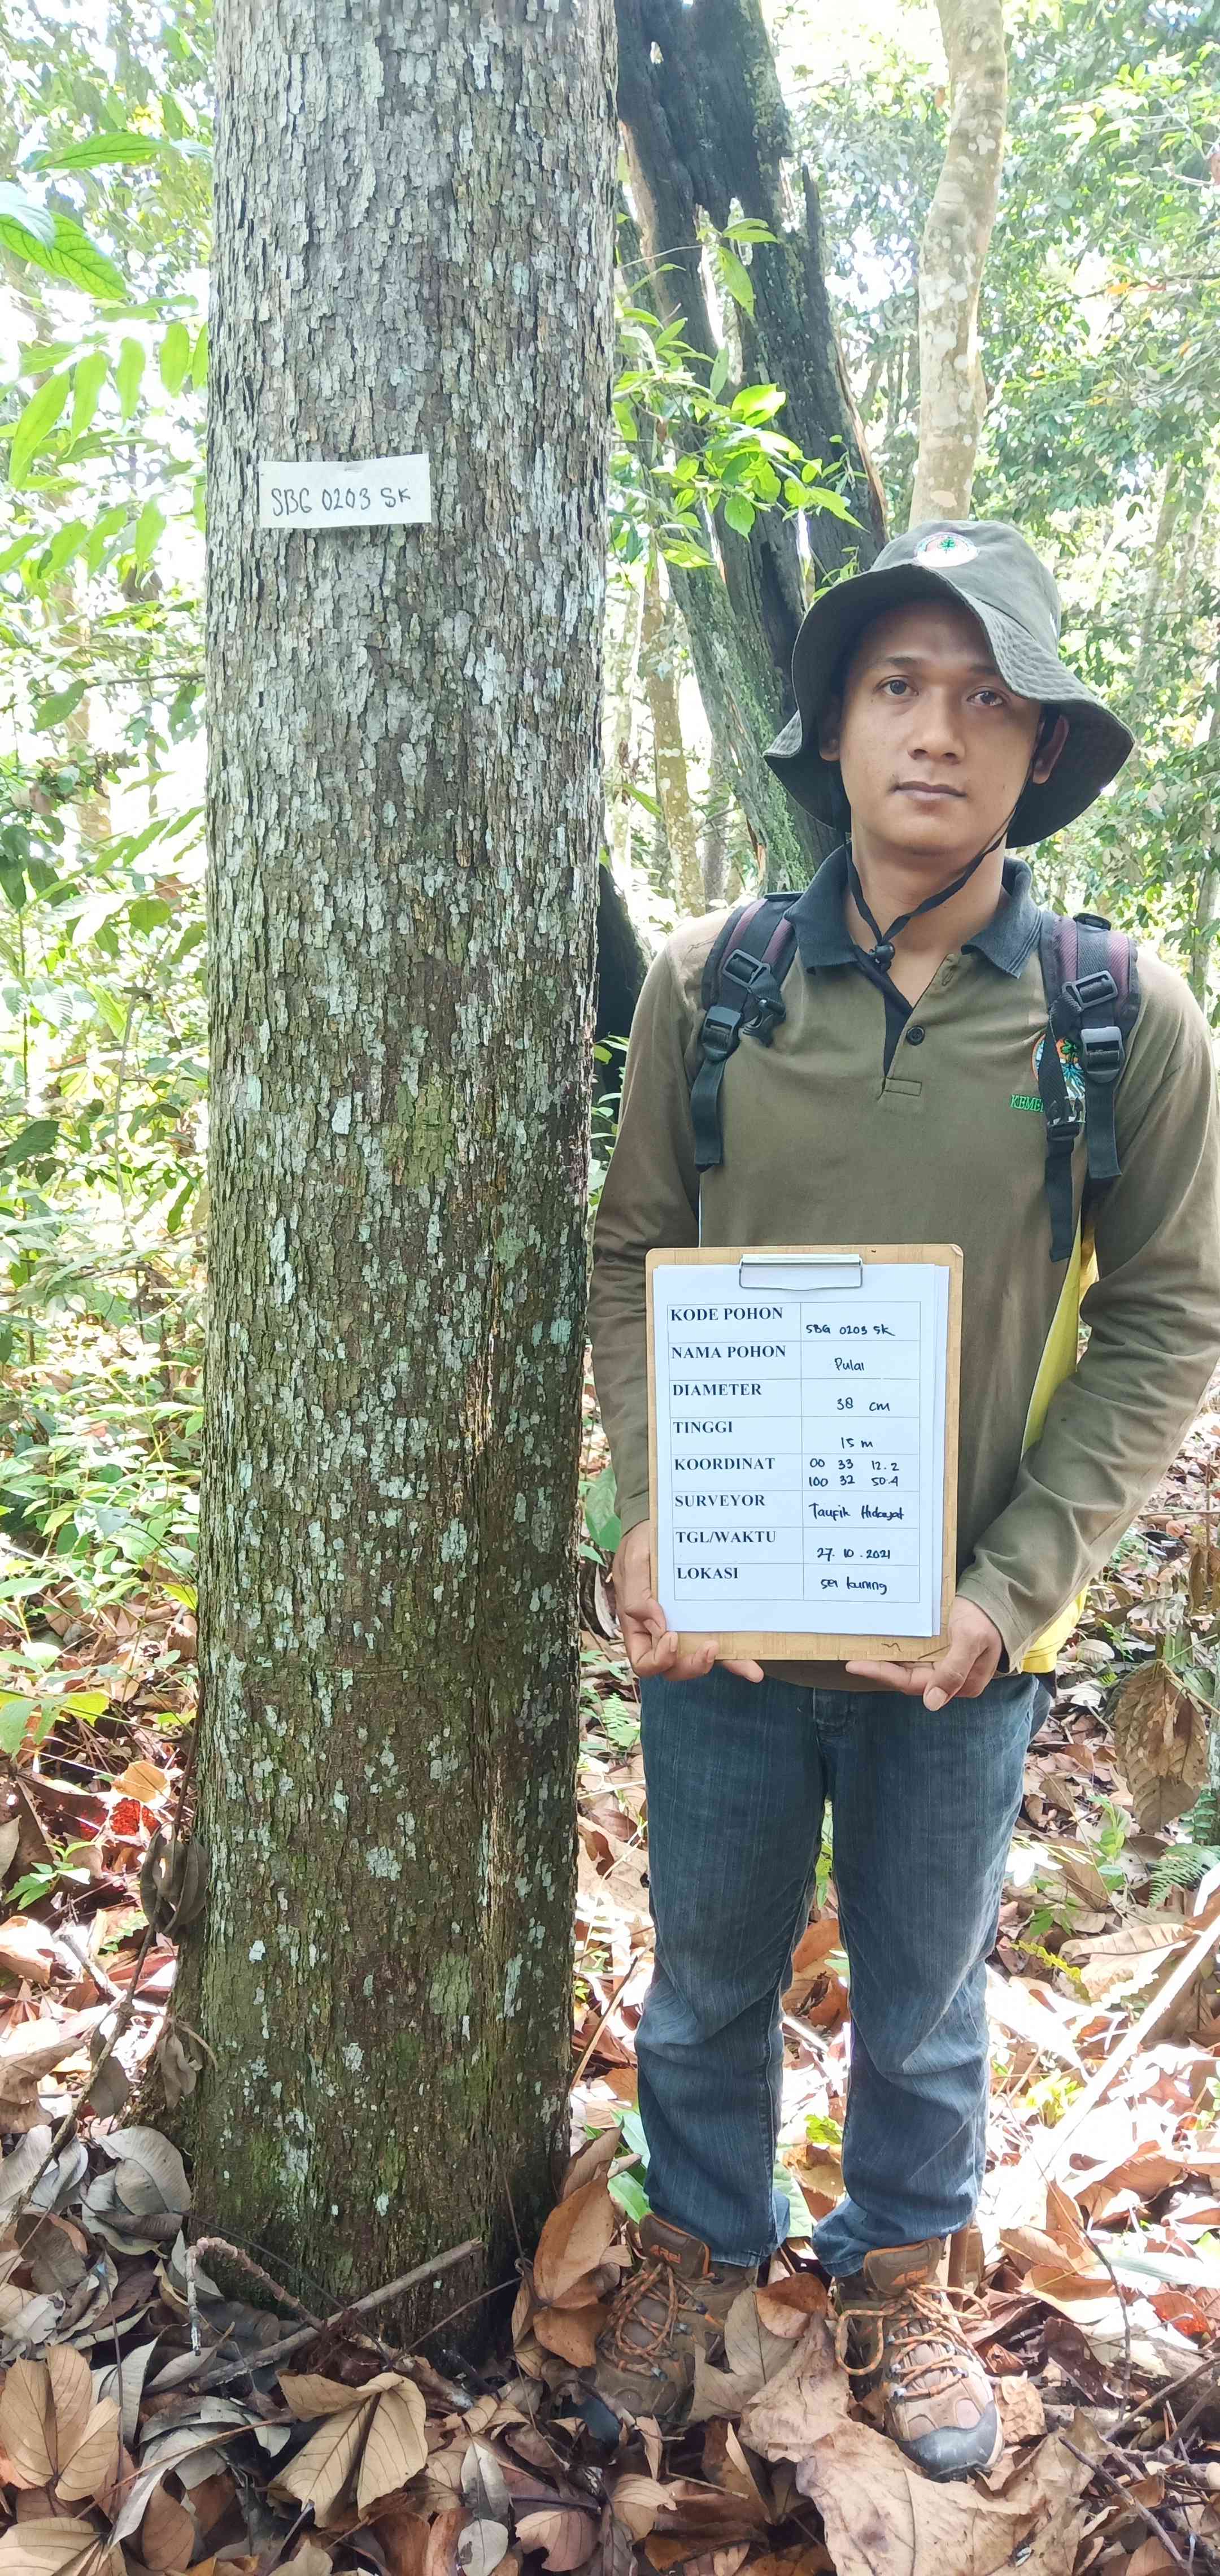 SBG 0203 SK
KEME
KODE POHON SBG 0203 SK
NAMA POHON Pulai
DIAMETER 38 cm
TINGGI 15 m
KOORDINAT 00 33 12.2
100 32 50.4
SURVEYOR Taufik Hidayat
TGL/WAKTU 27.10.2021
LOKASI sei kuning